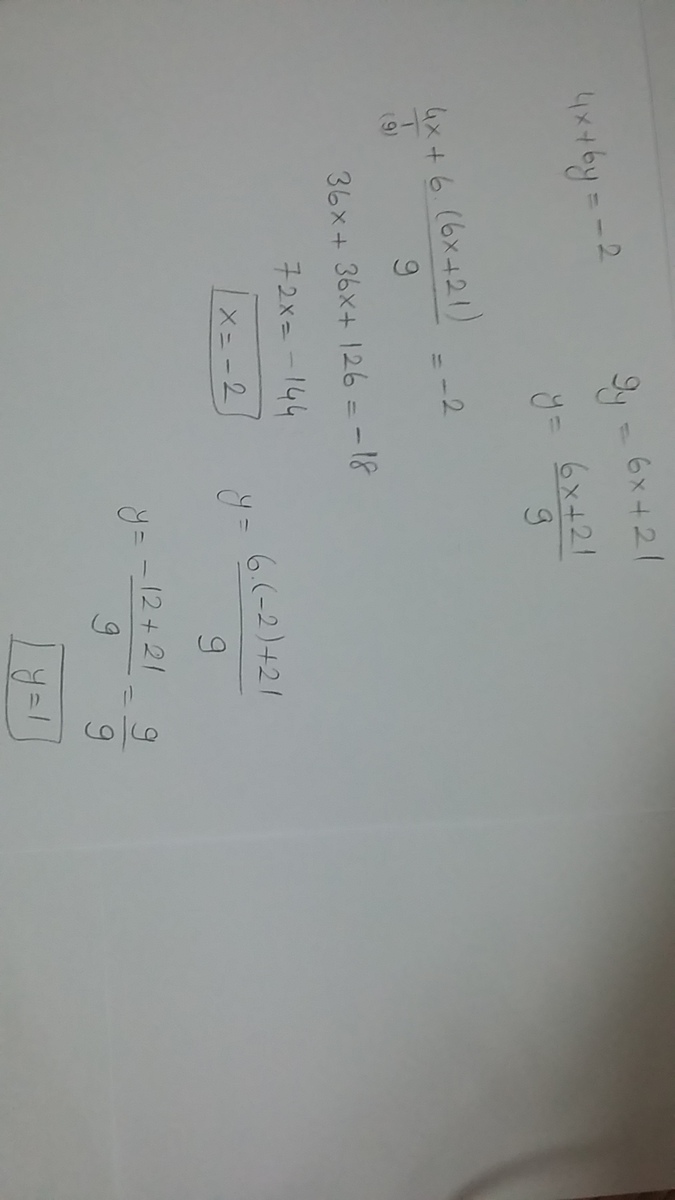 9y = 6x + 21
4x + 6y = -2
y = \frac{6x+21}{9}
\frac{4x}{1} + \frac{6.(6x+21)}{9} = -2
(9)
36x + 36x + 126 = -18
72x = -144
x = -2
y = \frac{6.(-2)+21}{9}
y = \frac{-12+21}{9} = \frac{9}{9}
y = 1